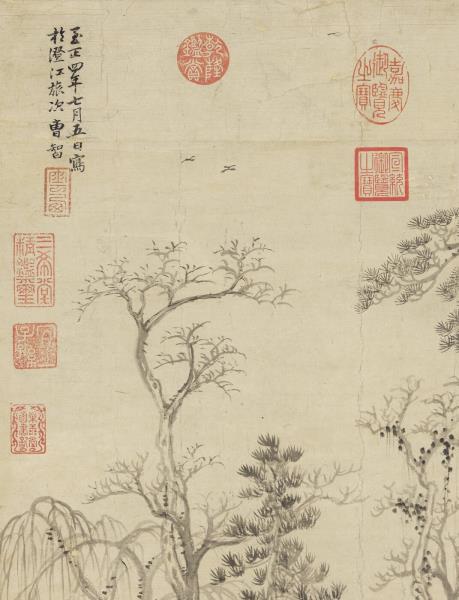 嘉慶
御覽
之寶
宣統
御覽
之寶
乾隆
鑑賞
至正四年七月五日寫
於澄江旅次曹智
三希堂
精鑑璽
宜
子孫